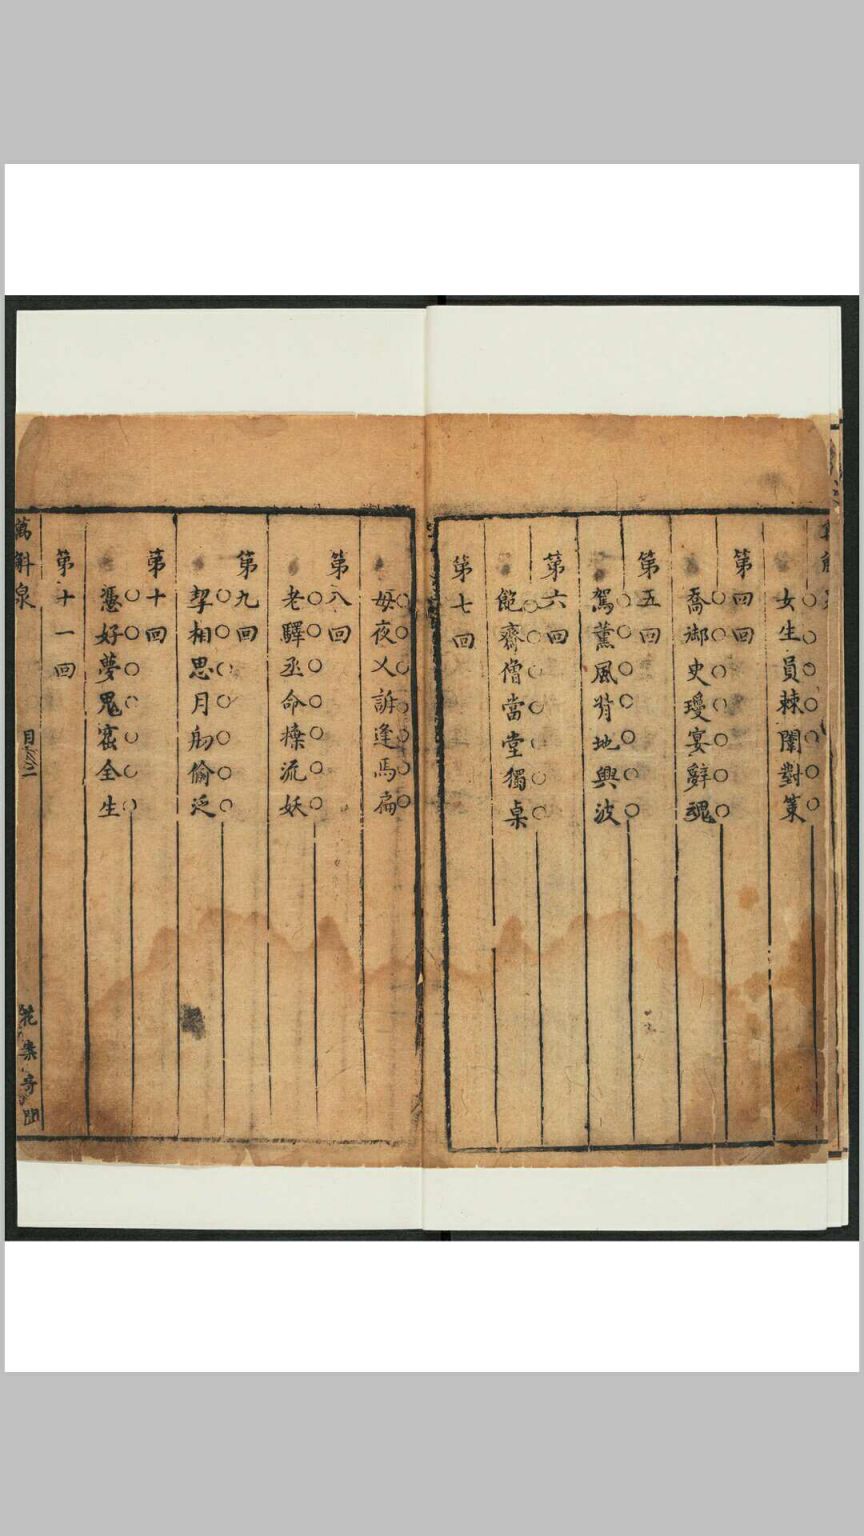 女生員棘闈對策
第四回
喬御史瓊宴辭魂
第五回
駕薰風背地興波
第六回
飽齋僧當堂獨桌
第七回
母夜乂訴逢馬扁
第八回
老驛丞命流妖
第九回
挈相思月舫偷泛
第十回
憑好夢鬼全生
第十一回
萬斛泉
目二
花案奇聞